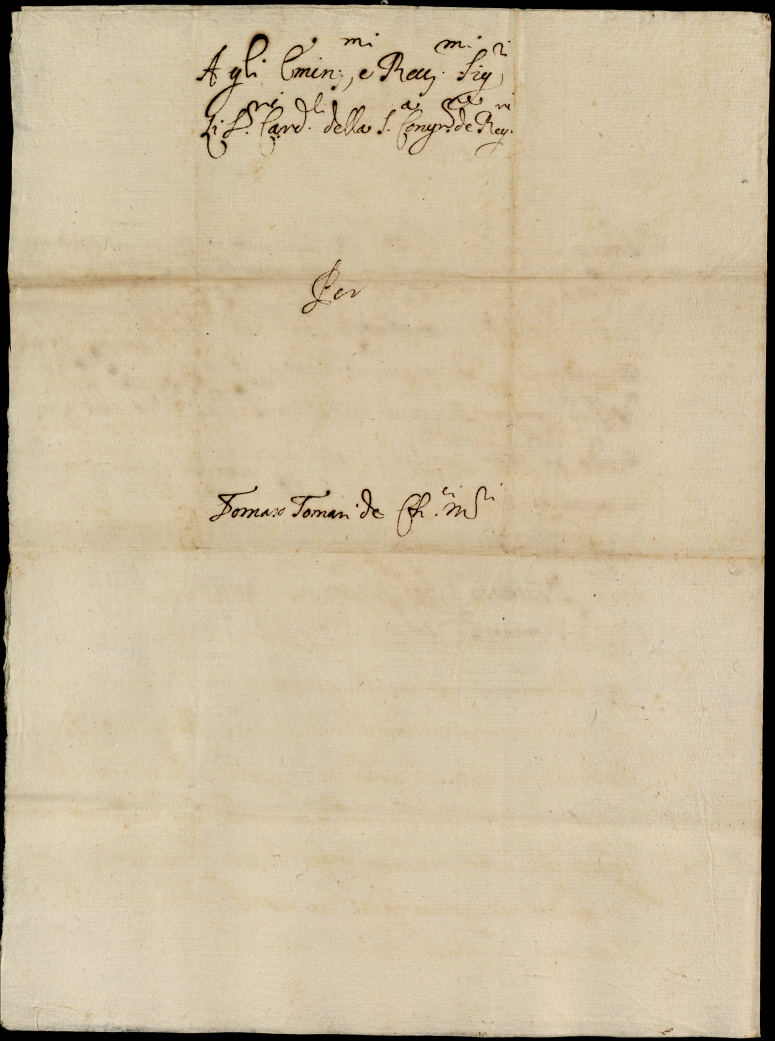 A gli Emin:mi, e Reu.mi Sig.ri
Li S.ri Card.li della S. Congr.ne de Reg.ri
Per
Tomaso Tomasi de Ch.ci M.ri